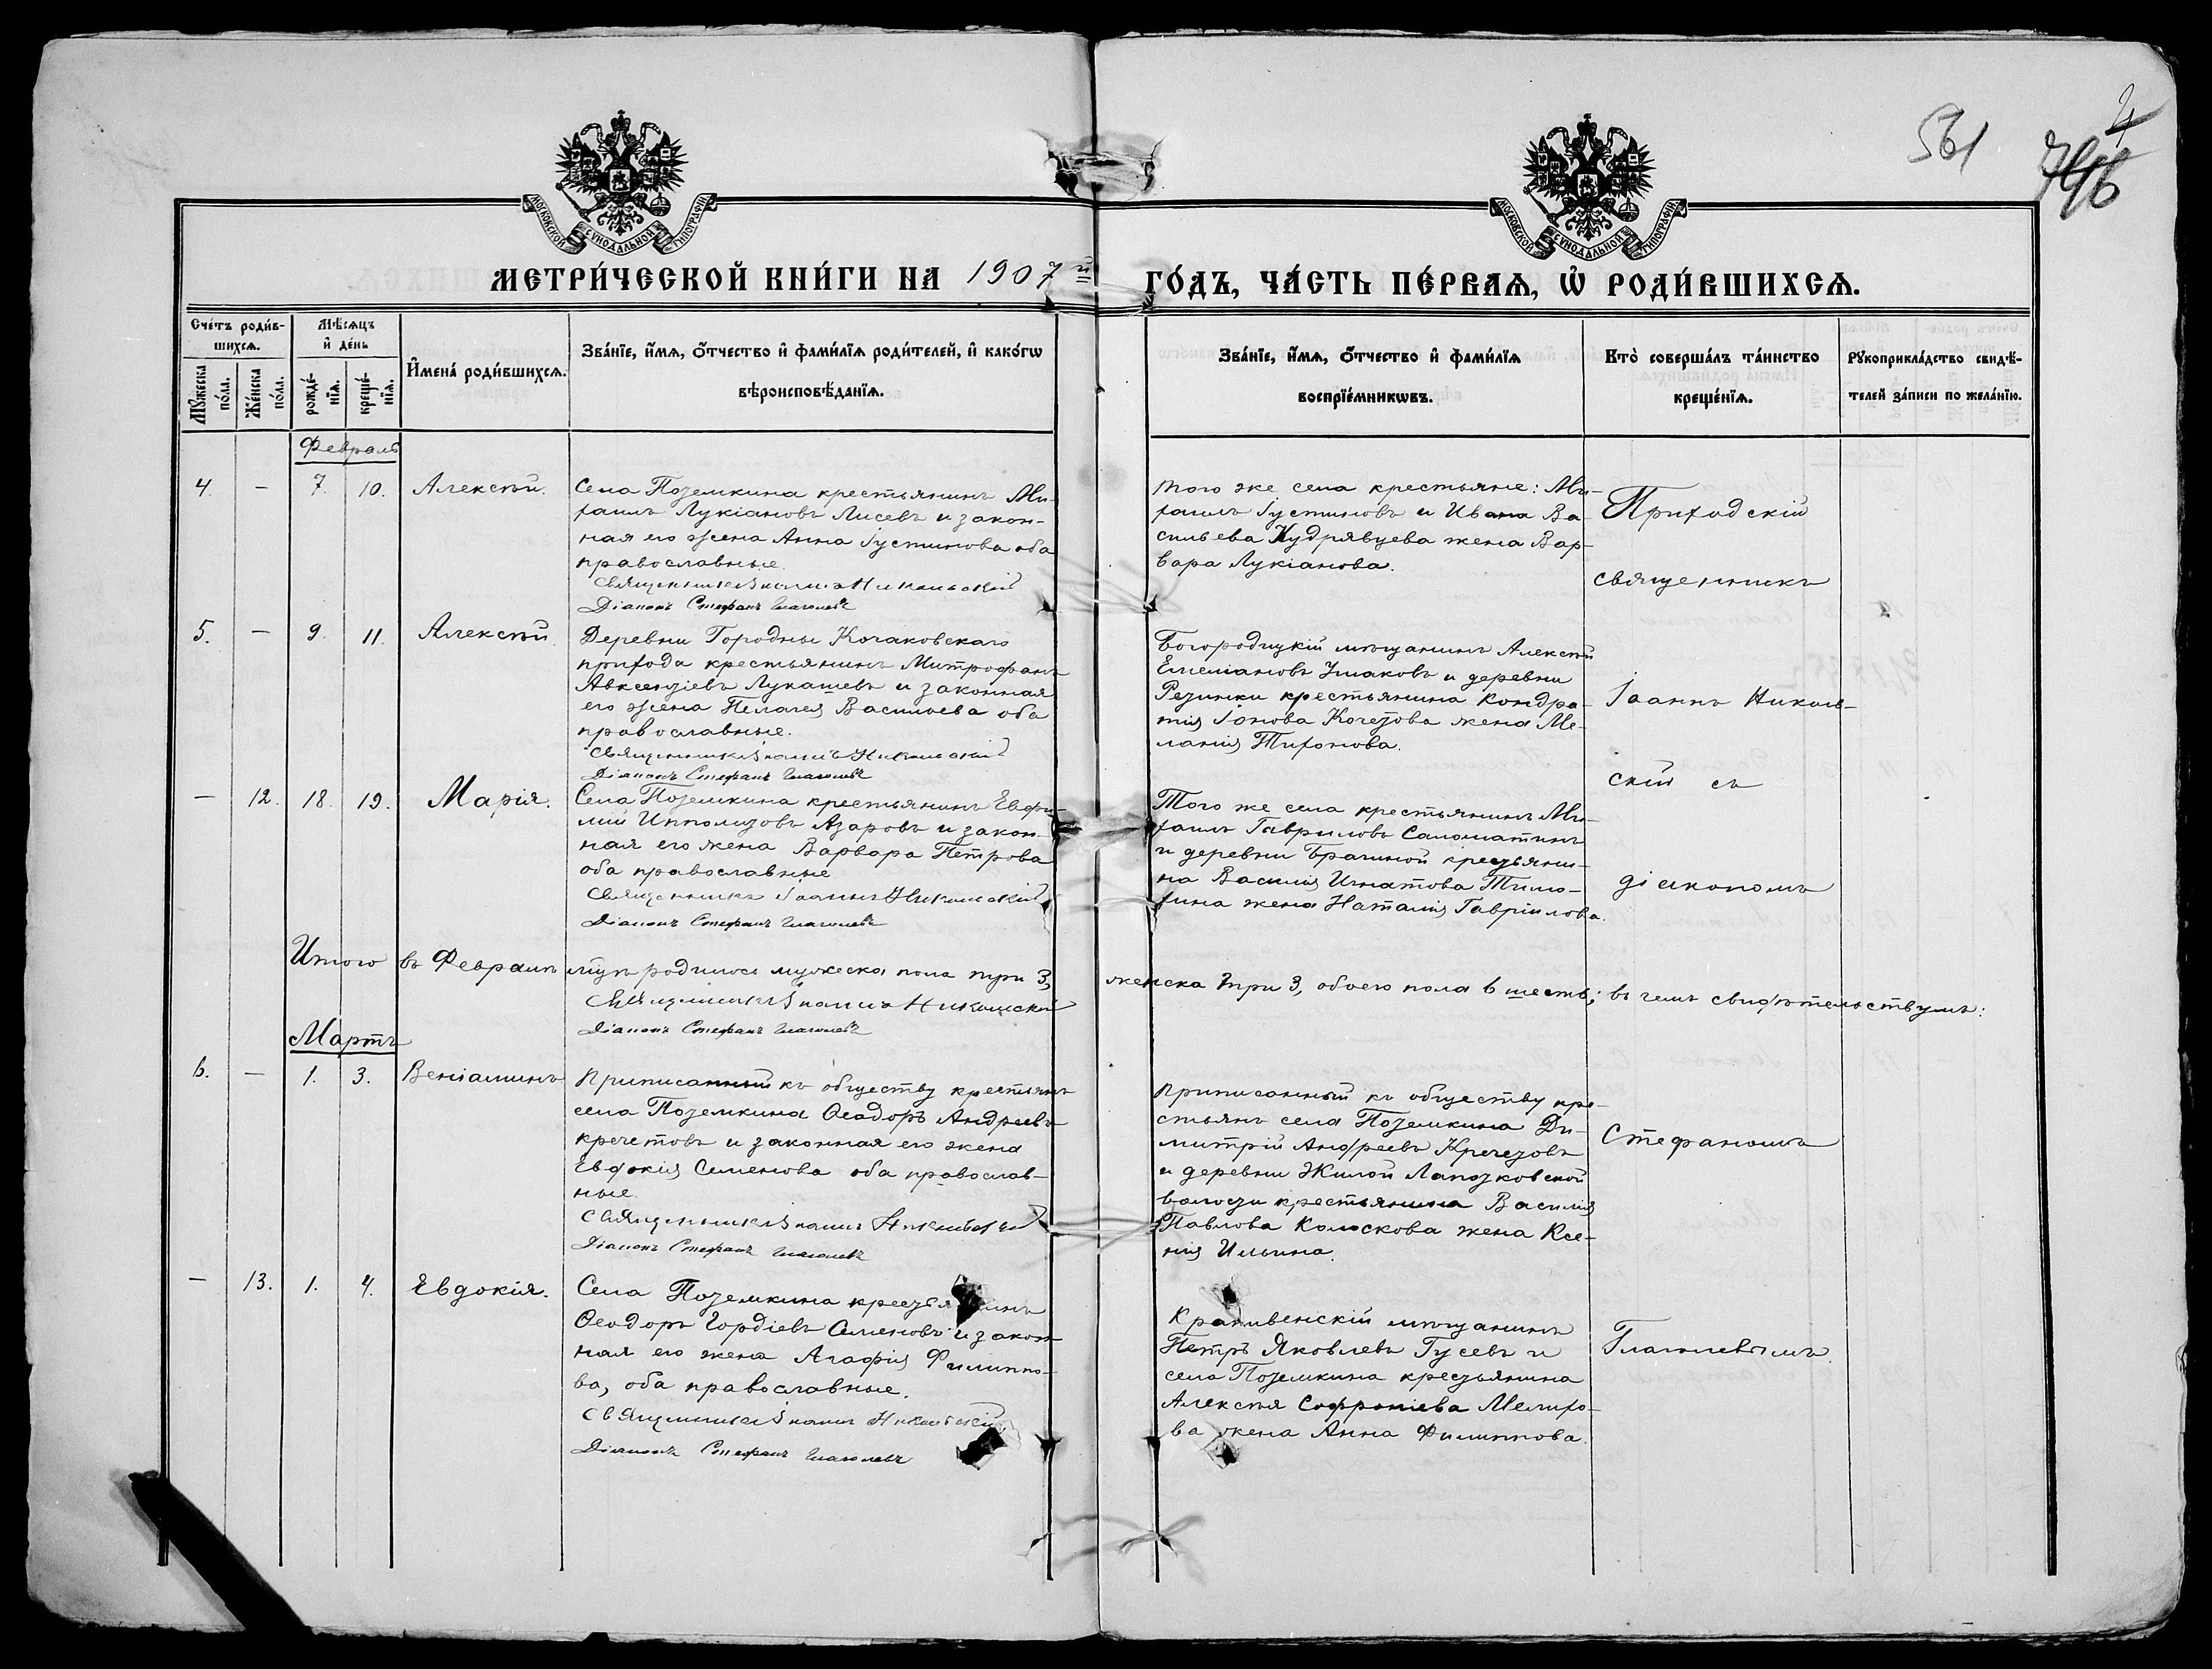 561
4
МОСКОВСКОЙ СѴНОДАЛЬНОЙ ТИПОГРАФІИ
МОСКОВСКОЙ СѴНОДАЛЬНОЙ ТИПОГРАФІИ
МЕТРИ́ЧЕСКОЙ КНИ́ГИ НА 1907й
ГО́ДЪ, ЧА́СТЬ ПЕ́РВАѦ, Ѽ РОДИ́ВШИХСѦ.
Сче́тъ роди́в-
шихсѧ.
Мѣ́сѧцъ
и҆ де́нь
Мꙋ́жеска
по́ла.
Же́нска
по́ла.
рожде́-
нїѧ.
креще́-
нїѧ.
И҆мена̀ роди́вшихсѧ.
Зва́нїе, и҆́мѧ, ѻ҆́тчество и҆ фами́лїѧ роди́телей, и҆ како́гѡ
вѣроисповѣ́данїѧ.
Зва́нїе, и҆́мѧ, ѻ҆́тчество и҆ фами́лїѧ
воспрїе́мникѡвъ.
Кто̀ соверша́лъ та́инство
креще́нїѧ.
Рꙋкоприкла́дство свидѣ́-
телей за́писи по жела́нїю.
Февраль
4. — 7. 10. Алексѣй.
Села Поземкина крестьянинъ Ми-
хаилъ Лукіановъ Лисевъ и закон-
ная его жена Анна Іустинова оба
православные.
Священникъ Іоаннъ Никольскій
Діаконъ Стефанъ Глаголевъ
того же села крестьяне: Ми-
хаилъ Іустиновъ и Ивана Ва-
сильева Кудрявцева жена Вар-
вара Лукіанова.
5. — 9. 11. Алексѣй
Деревни Городны Кочаковскаго
прихода крестьянинъ Митрофанъ
Авксентіевъ Лукашевъ и законная
его жена Пелагея Васильева оба
православные.
Священникъ Іоаннъ Никольскій
Діаконъ Стефанъ Глаголевъ
Богородицкій мѣщанинъ Алексѣй
Емеліановъ Ушаковъ и деревни
Резинки крестьянина Кондра-
тія Іонова Кочетова жена Ме-
ланія Тихонова.
— 12. 18. 19. Марія.
Села Поземкина крестьянинъ Евфи-
мій Ипполитовъ Азаровъ и закон-
ная его жена Варвара Петрова
оба православные
Священникъ Іоаннъ Никольскій
Діаконъ Стефанъ Глаголевъ
Того же села крестьянинъ Ми-
хаилъ Гавриловъ Саломатинъ
и деревни Брагиной крестьяни-
на Василія Игнатова Тимо-
хина жена Наталія Гавріилова.
Итого въ Февралѣ мцѣ родилось мужеска пола три 3, женска три 3, обоего пола 6 шесть; въ чемъ свидѣтельствуемъ:
Священникъ Іоаннъ Никольскій
Діаконъ Стефанъ Глаголевъ
Мартъ
6. — 1. 3. Веніаминъ
Приписанный къ обществу крестьянъ
села Поземкина Ѳеодоръ Андреевъ
Кречетовъ и законная его жена
Евдокія Семенова оба православ-
ные.
Священникъ Іоаннъ Никольскій
Діаконъ Стефанъ Глаголевъ
Приписанный къ обществу кре-
стьянъ села Поземкина Ди-
митрій Андреевъ Кречетовъ
и деревни Жилой Лапотковской
волости крестьянина Василія
Павлова Колоскова жена Ксе-
нія Ильина.
— 13. 1. 4. Евдокія.
Села Поземкина крестьянинъ
Ѳеодоръ Гордіевъ Семеновъ и закон-
ная его жена Агафія Филиппо-
ва, оба православные.
Священникъ Іоаннъ Никольскій
Діаконъ Стефанъ Глаголевъ
Крапивенскій мѣщанинъ
Петръ Яковлевъ Гусевъ и
села Поземкина крестьянина
Алексѣя Софроніева
ва жена Анна Филиппова.
Приходскій
священникъ
Іоаннъ Николь-
скій съ
діакономъ
Стефаномъ
Глаголевымъ.